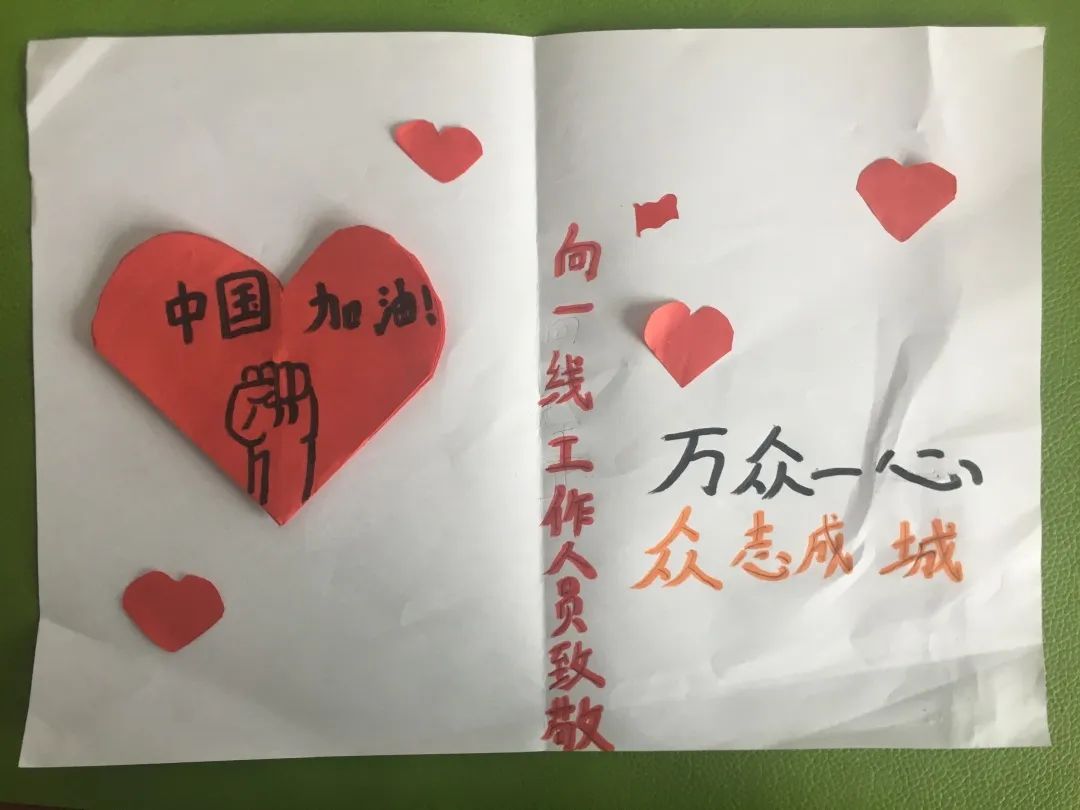 中国 加油!
向一线工作人员致敬
万众一心
众志成城